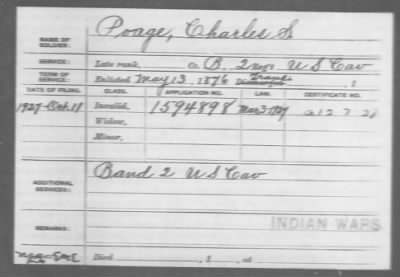 NAME OF SOLDIER: Poage, Charles S
SERVICE: Late rank, Co. B, 2 Reg't U S Cav
TERM OF SERVICE: Enlisted May 13, 1876
DATE OF FILING. CLASS. APPLICATION NO. LAW. CERTIFICATE NO.
1927-Oct. 11 Invalid, 1594898 Mar 3-1927
Widow,
Minor,
ADDITIONAL SERVICES: Band 2 U S Cav
INDIAN WARS
REMARKS:
Died , 1 , at